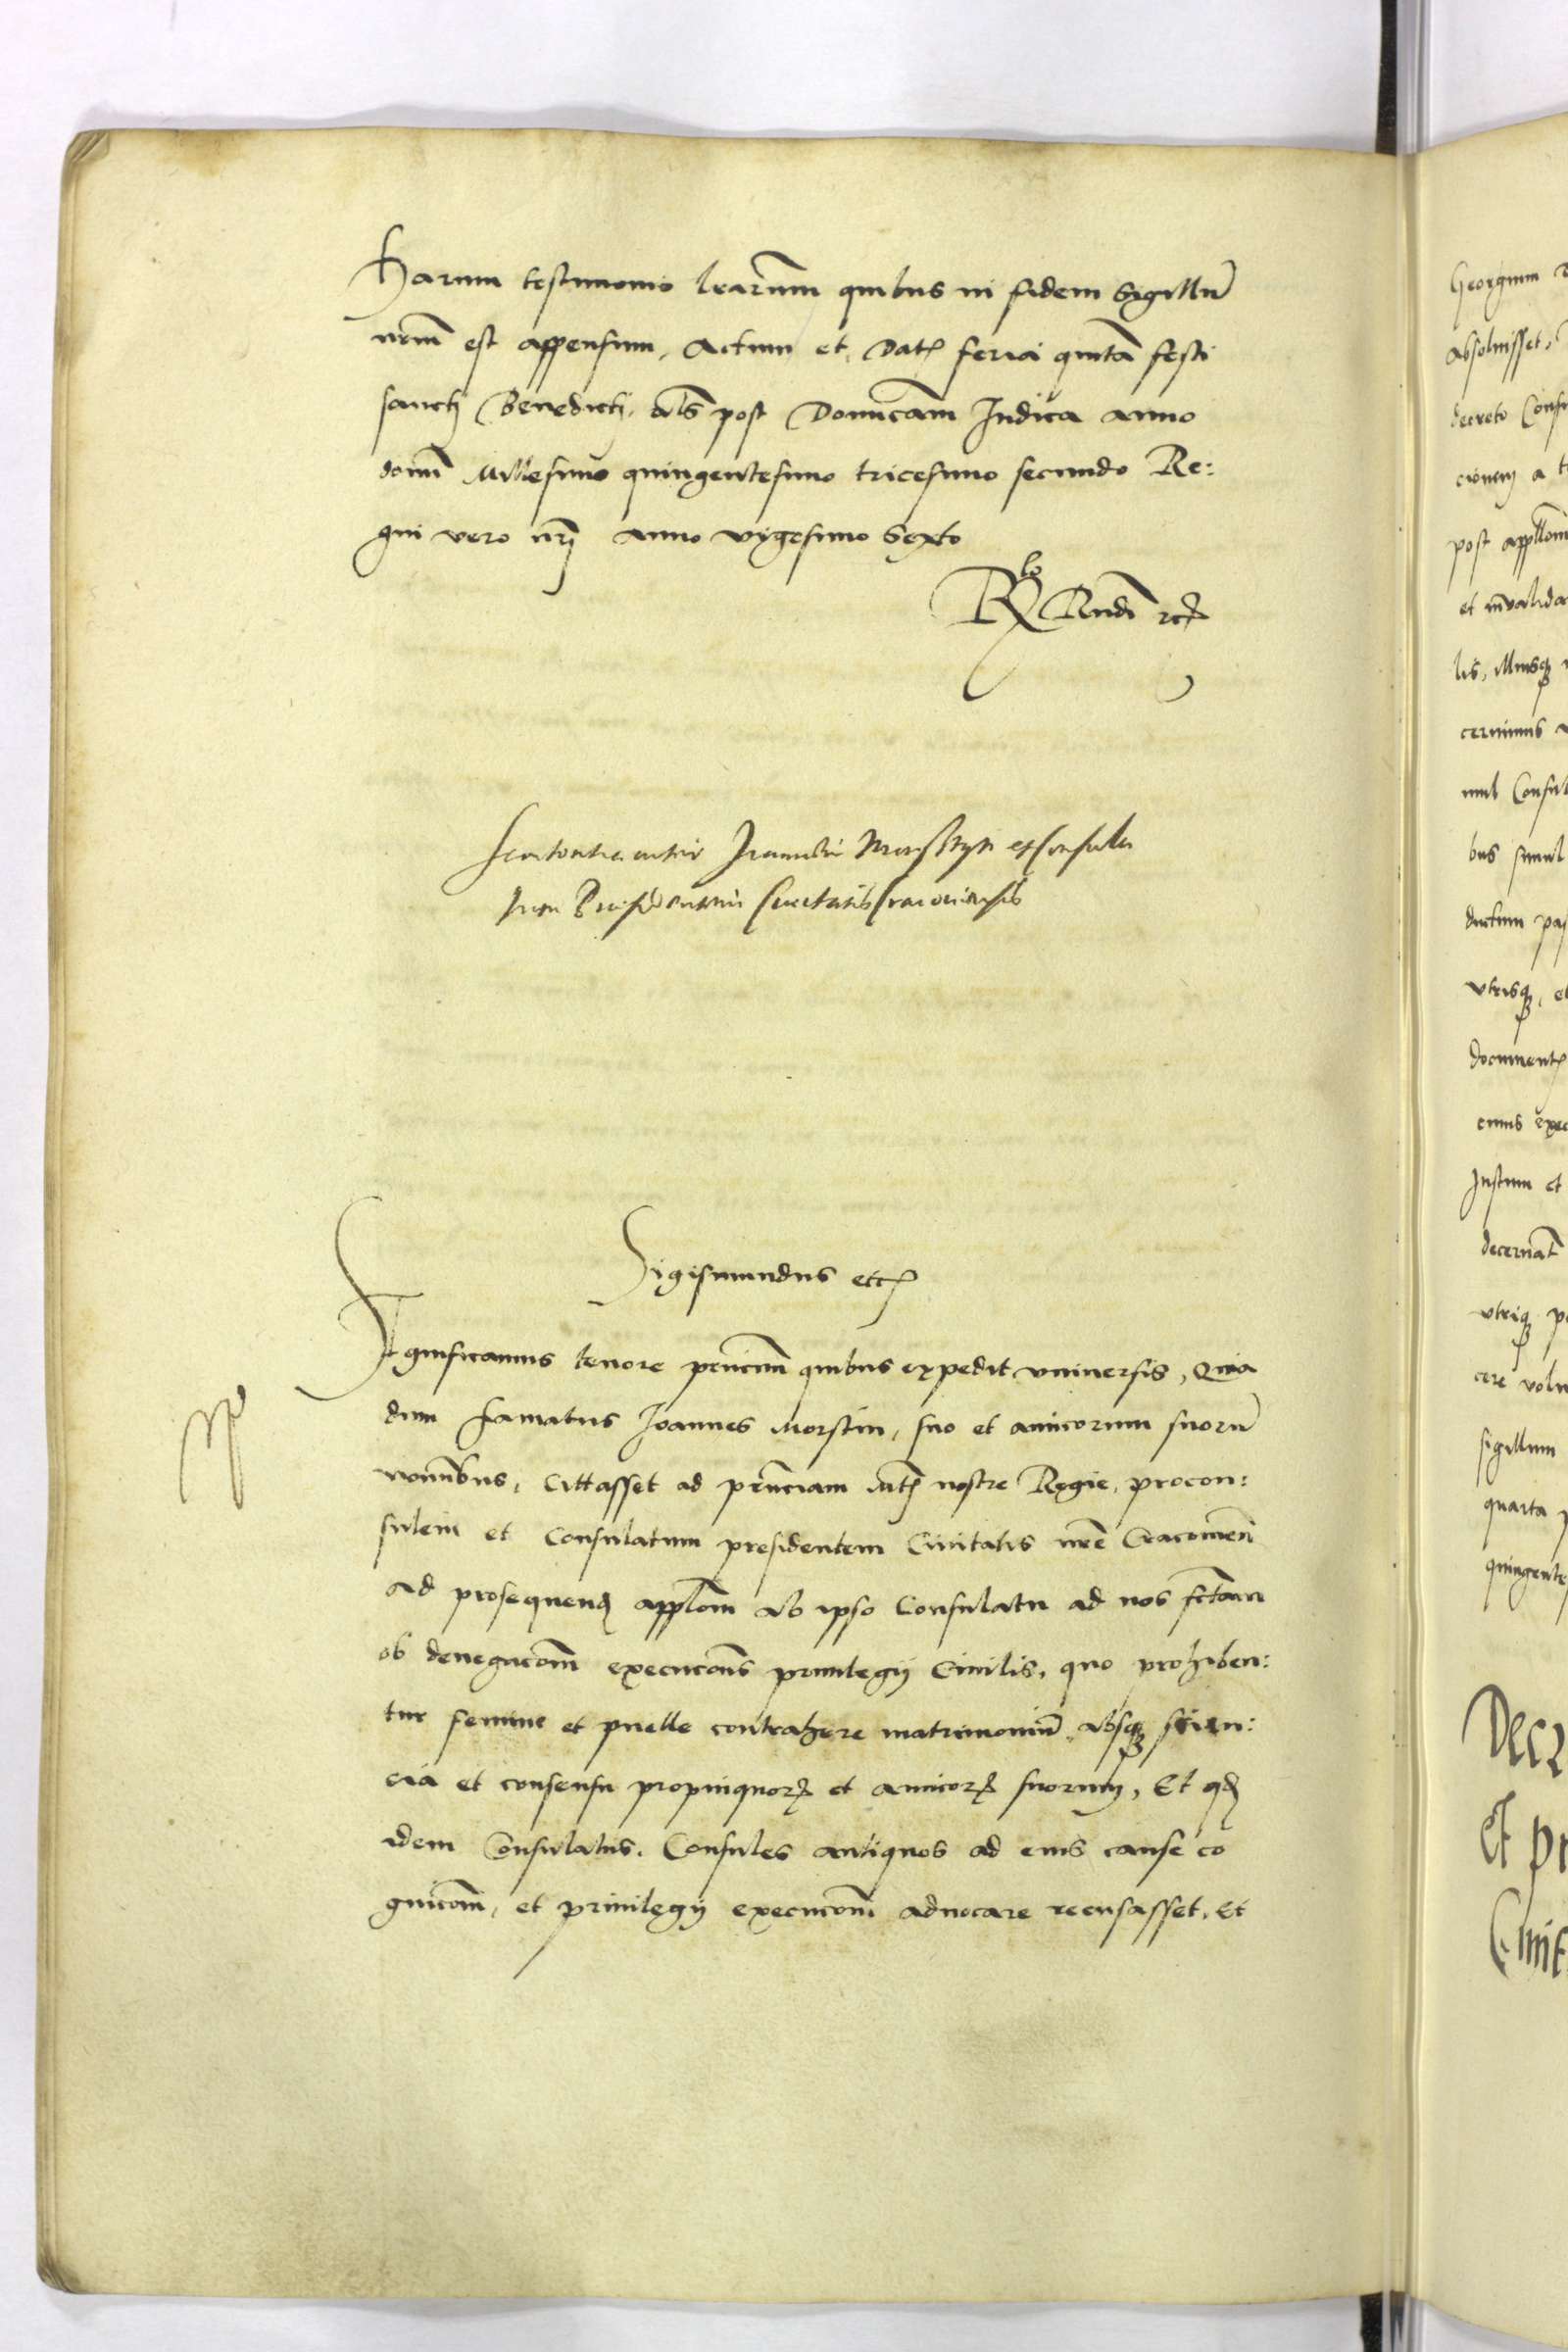 Harum testimonio lrarum quibus in fidem Sigillu
nrm est appensum, Actum et Dat feria quinta festi
sancti Benedicti, als post Dominicam Iudica anno
domi Millesimo quingentesimo tricesimo secundo Re:
gni vero nri anno vigesimo Sexto
Sententia inter Joannem Morsthyn et Consula
tum Presidentem Civitatis Cracoviensis
Sigismundus etc
Significamus tenore prncium quibus expedit vniuersis, Quia
dum famatus Joannes Morstin, suo et amicorum suoru
nominibus, Cittasset ad prnciam Mtis nostre Regie, procon:
sulem et Consulatum presidentem Ciuitatis nre Cracouien
ad prosequend applcom ab ipso Consulatu ad nos fctam
ob denegacom execucois priuilegij Ciuilis, quo prohiben:
tur femine et puelle contrahere matrimoniu absq scien:
cia et consensu propinquor et amicor suorum, Et qd
idem Consulatus, Consules antiquos ad eius cause co
gnicom, et priuilegij execucom aduocare recusasset, Et
Georgium
absoluisset,
decreto Consu
cionem a
post appllom
et inualida
lis, illiusq
cernimus
mul Consul
bus simul
ductum pa
vtrisq, et
document
cuius exec
Justum et
decernat
vtriq p
cere volu
sigillum
quarta
quingente
Decr
Et pr
Ciuit